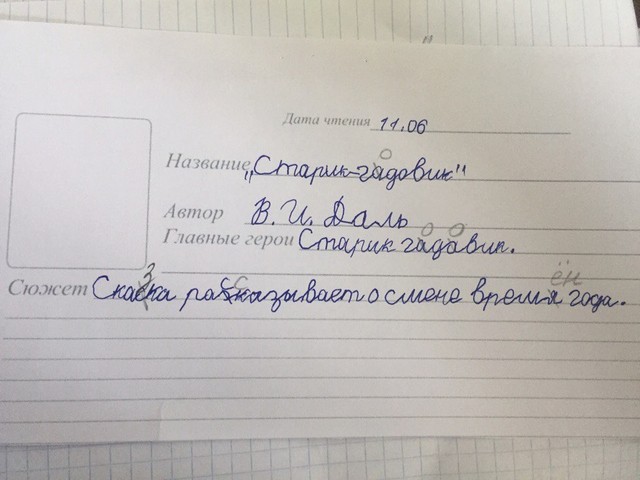 Дата чтения 11.06
Название „Старик-гадовик"
Автор В. И. Даль
Главные герои Старик гадавик.
Сюжет Скаска расказывает о смене время года.